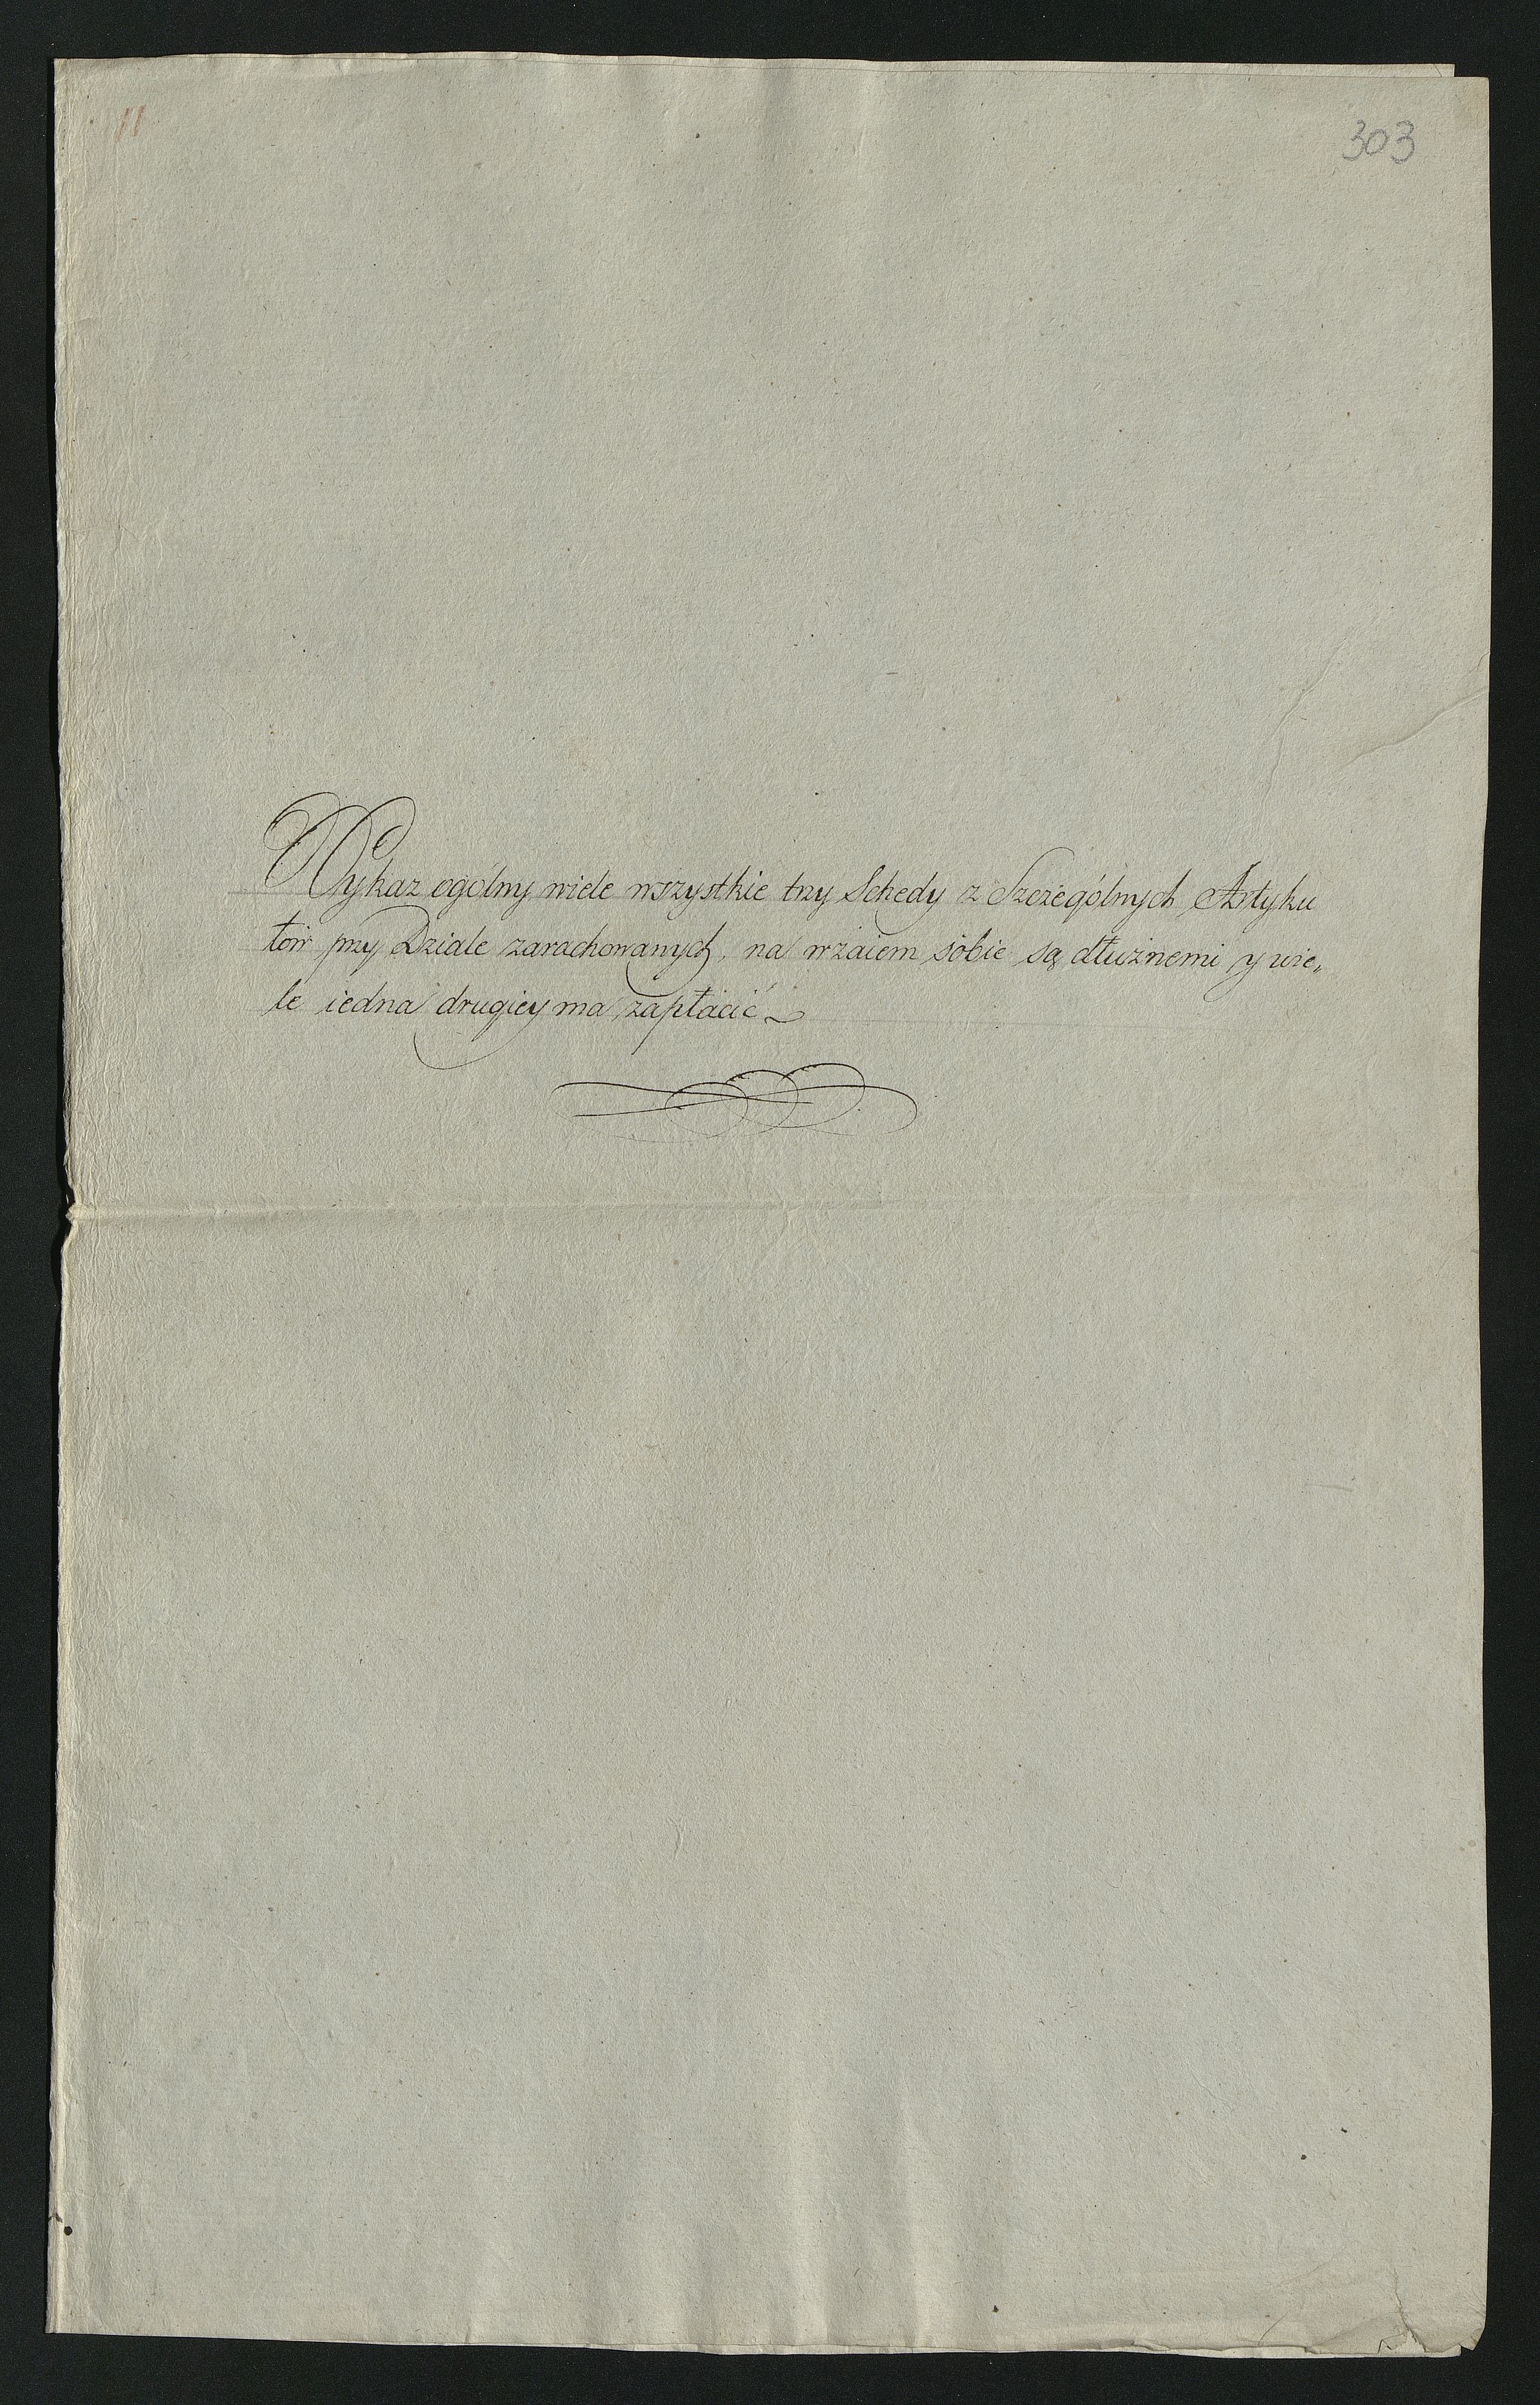 11
303
Wykaz ogólny wiele wszystkie trzy Schedy z Szczególnych Artyku
łów przy Dziale zarachowanych, na wzaiem sobie są dłużnemi y wie„
le iedna drugiey ma zapłacić